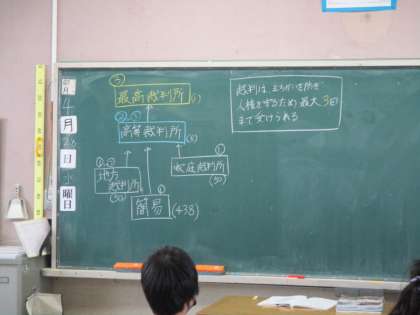 4
月
日
曜日
③
最高裁判所(1)
②,③
高等裁判所(8)
①,②
地方
裁判所
(50)
①
家庭裁判所
(50)
①
簡易(438)
裁判は、まちがいを防ぎ
人権を守るため最大3回
まで受けられる